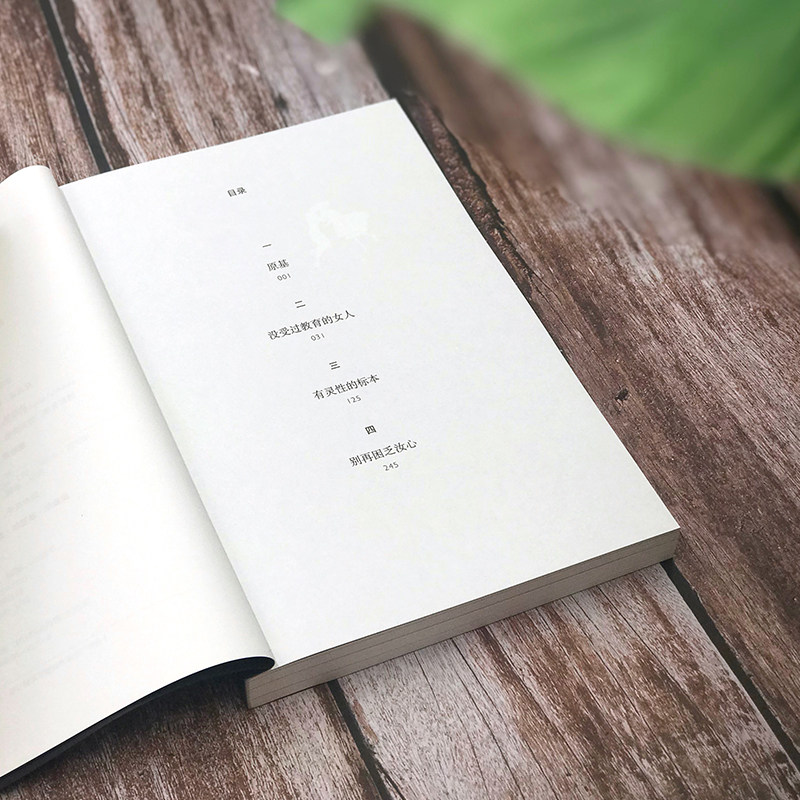 目录
一
原基
001
二
没受过教育的女人
031
三
有灵性的标本
125
四
别再困乏汝心
245